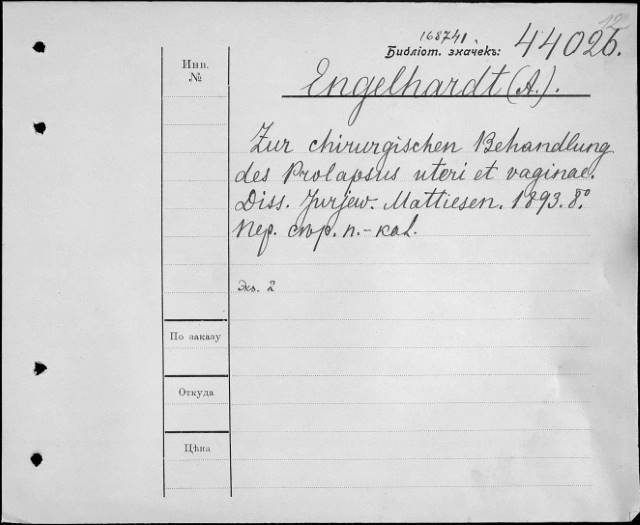 168741.
Библіот. значекъ: 44026.
Инв.
№
Engelhardt (A.).
Zur chirurgischen Behandlung
des Prolapsus uteri et vaginae.
Diss. Jurjew. Mattiesen. 1893. 8º.
Пер. стр. п.-kal.
Экз. 2
По заказу
Откуда
Цѣна